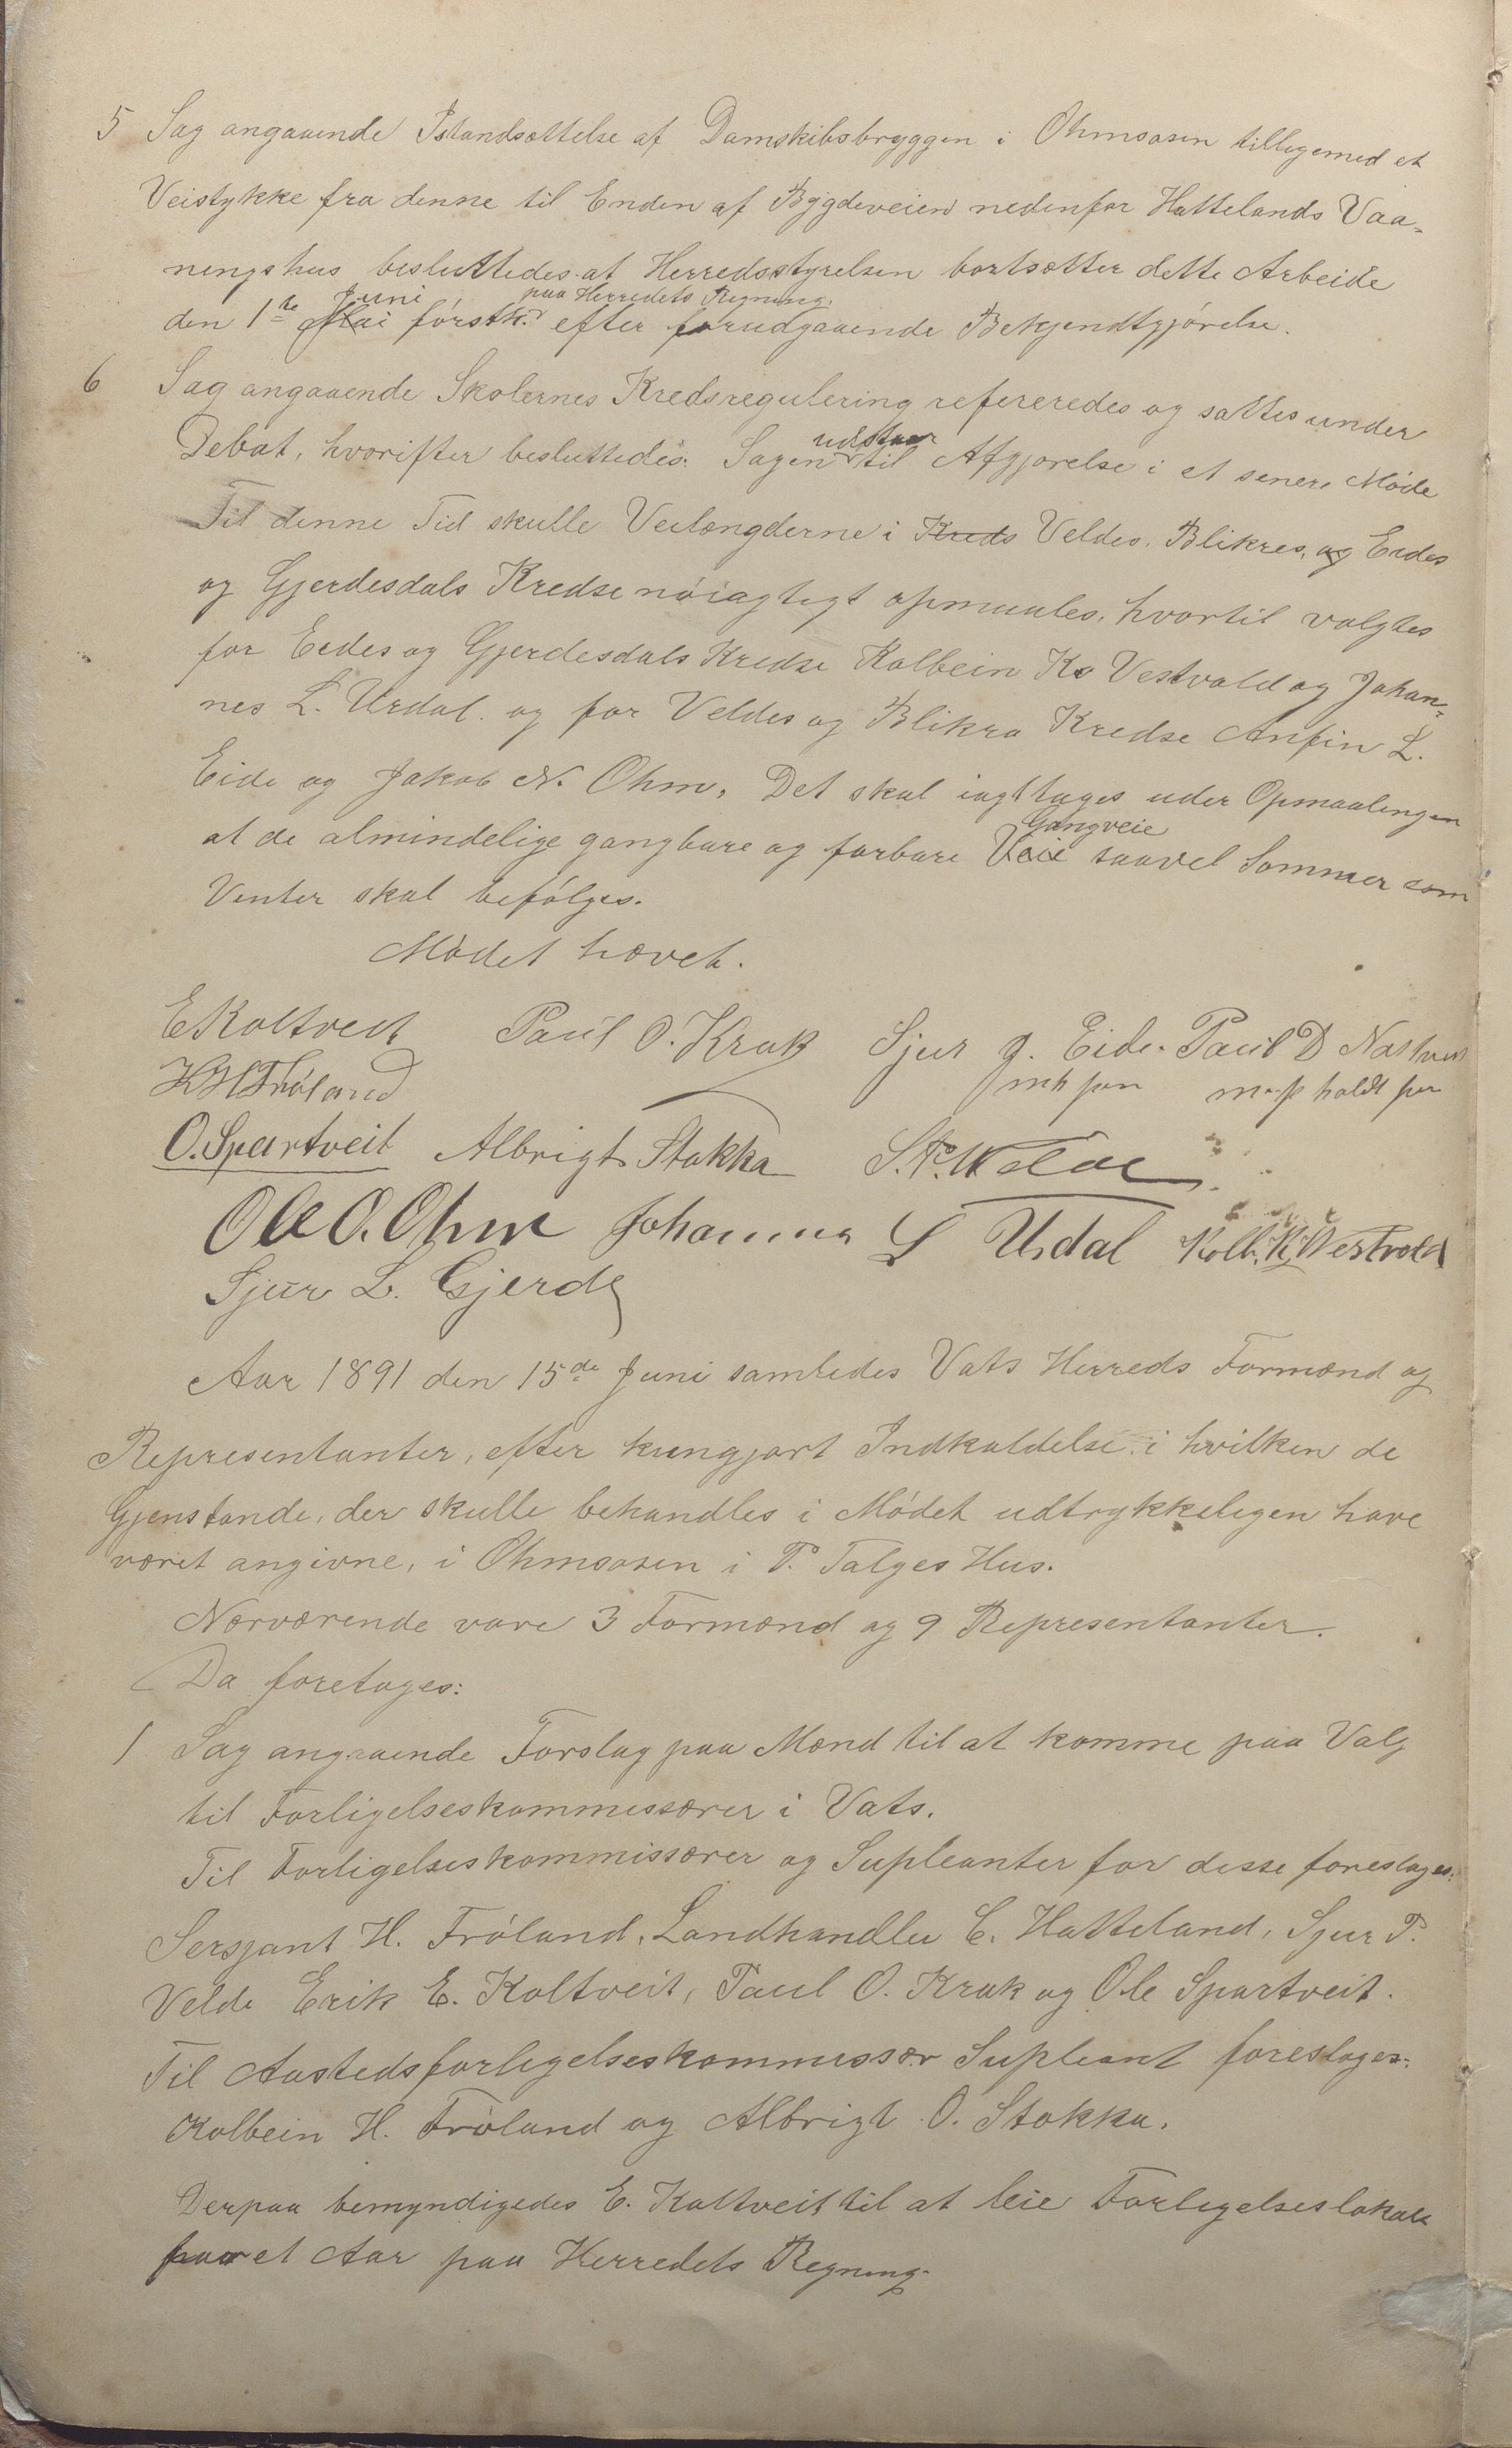 5 Sag angaaende Istandsættelse af Damskibsbryggen i Ohmsosen tilligemed et
Veistykke fra denne til Enden af Bygdeveien nedenfor Hattelands Vaa-
ningshus besluttedes at Herredsstyrelsen bortsætter dette Arbeide
Juni paa Herredets Regning.
den 1te Mai førstk. efter forudgaaende Bekjendtgjørelse.
6 Sag angaaende Skolernes Kredsregulering refereredes og sattes under
udstaar
Debat, hvorifter besluttedes: Sagen til Afgjørelse i et senere Møde
Til denne Tid skulle Veilængderne i Kreds Veldes, Blikres, og Eides
og Gjerdesdals Kredse nøiagtigt opmaales, hvortil valgtes
for Eides og Gjerdesdals Kredse Kolbein K. Vestvold og Johan-
nes L. Urdal. og for Veldes og Blikra Kredse Anfin L.
Eide og Jakob N. Ohm. Det skal iagttages uder Opmaalingen
Gangveie
at de almindelige gangbare og farbare Veie saavel Sommer som
Venter skal befølges.
Mødet hævet.
E Koltveit Paul O. Krak Sjur J. Eide. Paul D
K H Frøland mh pen m. p holdt pen
O. Spartveit Albrigt Stokka S. P. Velde
Ole O. Ohm Johannes L Urdal Kolb. K. Vestvold
Sjur L. Gjerde
Aar 1891 den 15de Juni samledes Vats Herreds Formænd og
Representanter, efter kungjort Indkaldelse i hvilken de
Gjenstande, der skulle behandles i Mødet udtrykkeligen have
været angivne, i Ohmsosen i T. Talges Hus.
Nærværende vare 3 Formænd og 9 Representanter.
Da foretages:
1 Sag angaaende Forslag paa Mænd til at komme paa Valg
til Forligelseskommessærer i Vats.
Til Forligelseskommissærer og Supleanter for disse foreslages:
Sersjant H. Frøland, Landhandler C. Hatteland, Sjur P.
Velde Erik E. Koltveit, Paul O. Krak og Ole Spartveit.
Til Aastedsforligelseskommessær Supleant foreslages:
Kolbein H. Frøland og Albrigt O. Stokka.
Derpaa bemyndigedes E. Koltveit til at leie Forligelseslokale
for et Aar paa Herredets Regning.